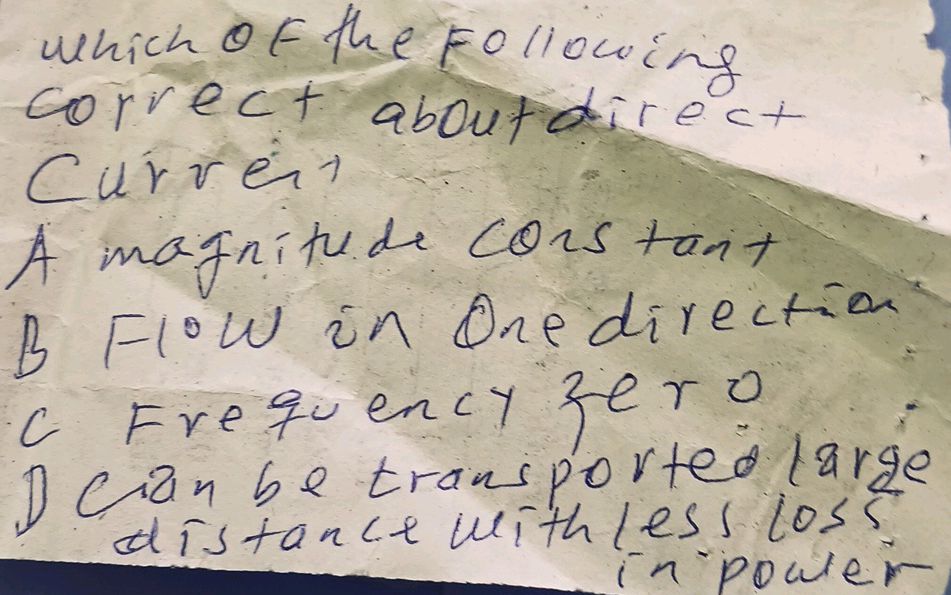 which OF the Following
correct about direct
Current
A magnitude constant
B Flow in One direction
C Frequency zero
D Can be transported large
distance with less loss
in power